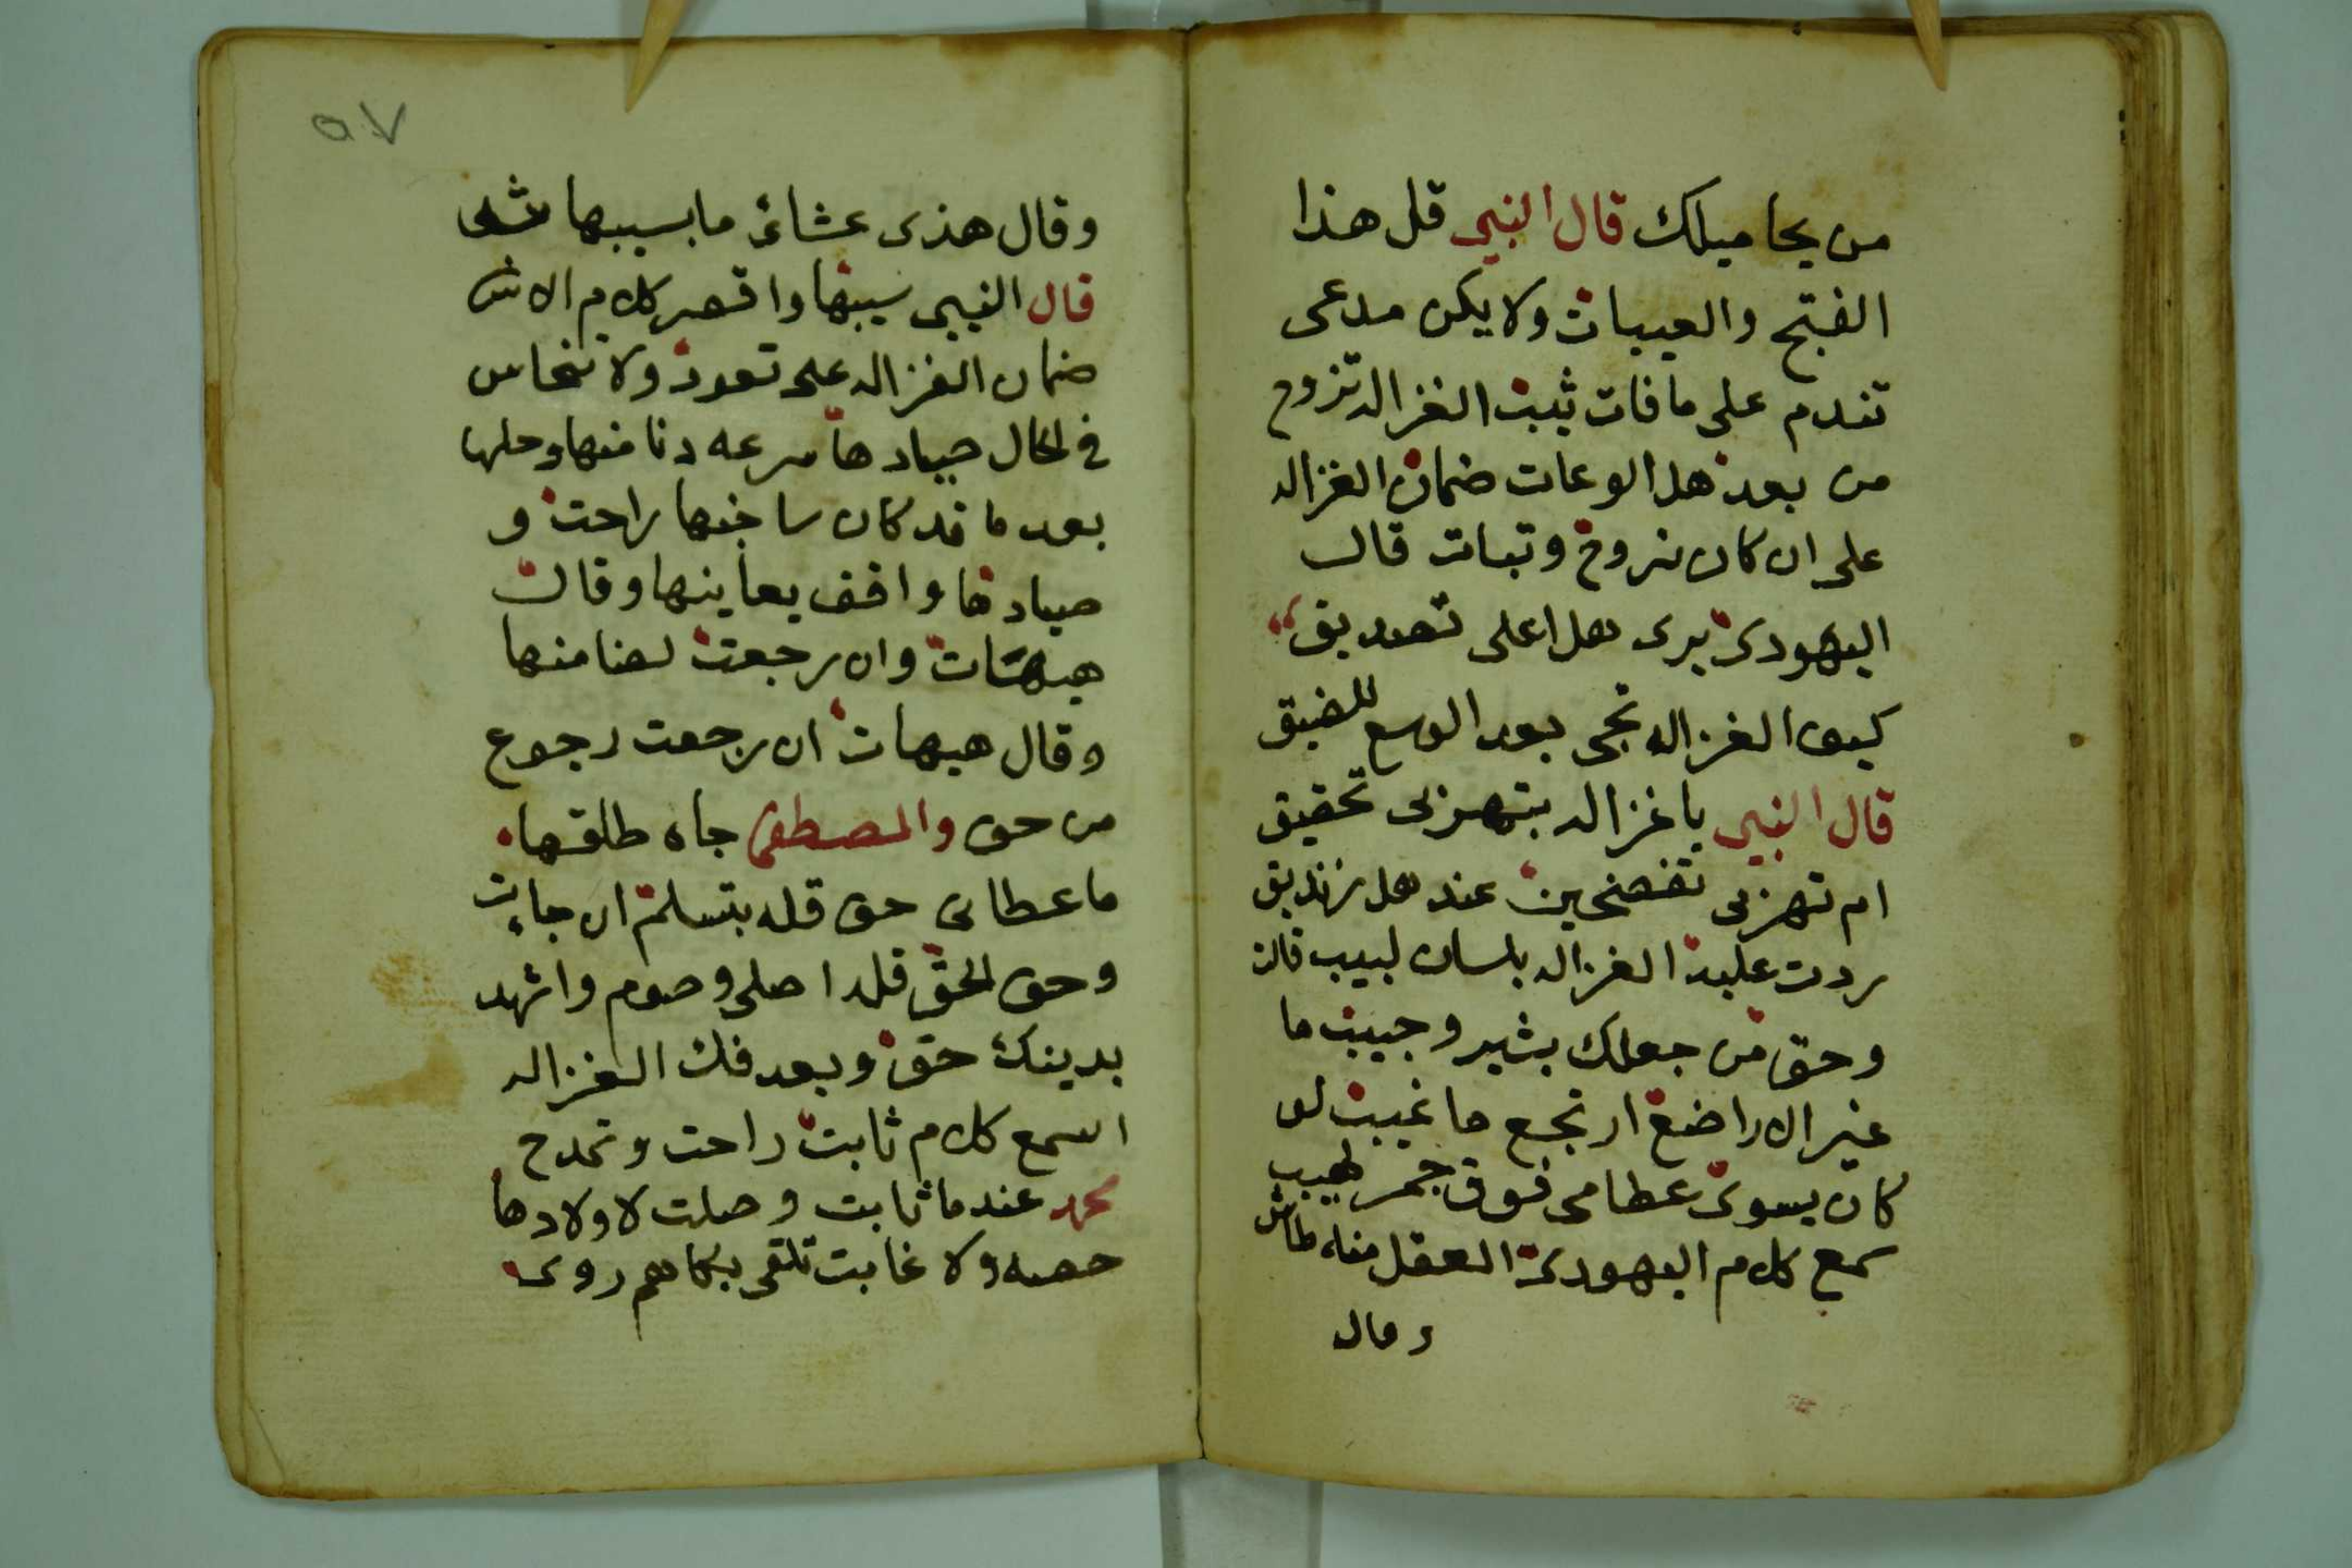 من يحاميلك قال النبي قل هذا
الفتح والعيبات ولا يكن مدعى
تندم على ما فات ثبت الغزاله تروح
من بعد هل الوعات ضمان الغزاله
على ان كان تروح وتبات قال
اليهودى يرى هل اعلى تصديق
كيف الغزاله تجى بعد الوسع للضيق
قال النبي يا غزاله بتهزلى تحقيق
ام تهزلى تفضحين عند هل زنديق
ردت عليه الغزاله بلسان لبيب قالت
وحق من جعلك بشير وحبيب ما
غير الا راضع ارتجع ما غيبت لو
كان يسوى عظامى فوق جمر لهيب
سمع كلام اليهودى العقل منه طاش
وقال
٥٧
وقال هذى عشائى ما بسيبها شى
قال النبي سيبها واقصر كلام الاش
ضمان الغزاله على تعود ولا تنحاس
في الحال صيادها سرعه دنا منها وحلها
بعد ما قد كان ساخنها راحت و
صيادها واقف يعاينها وقال
هيهات وان رجعت لهنا منها
وقال هيهات ان رجعت رجوع
من حق والمصطفى جاه طلقها
ما عطانى حق قله بتسلم ان جات
وحق الحق قله اصلى وصوم واشهد
بدينك حق وبعد فك الغزاله
اسمع كلام ثابت راحت وتمدح
محمد عندما ثابت وصلت لاولادها
حصه ولا غابت تلقى بكاهم روى